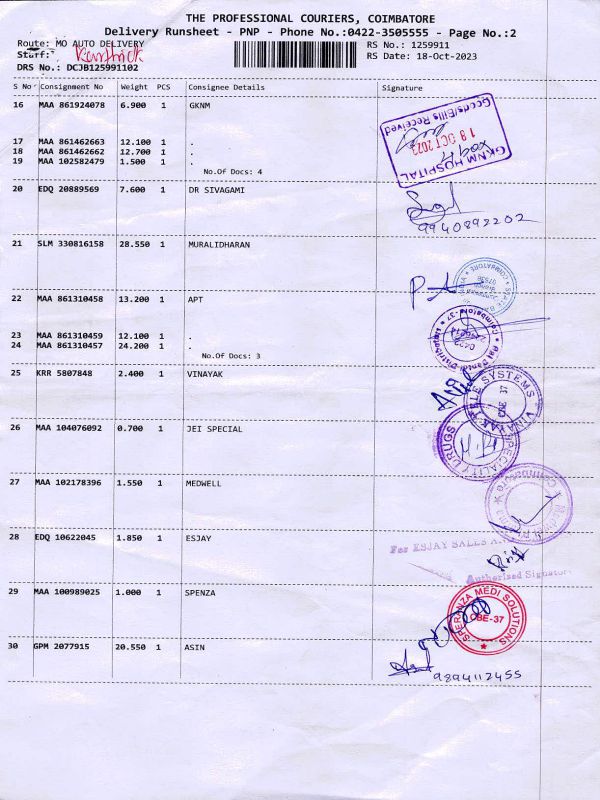 THE PROFESSIONAL COURIERS, COIMBATORE
Delivery Runsheet - PNP - Phone No.:0422-3505555 - Page No.:2
Route: MO AUTO DELIVERY
RS No.: 1259911
Staff:
RS Date: 18-Oct-2023
DRS No.: DCJB125991102
S No Consignment No Weight PCS Consignee Details Signature
16 MAA 861924078 6.900 1 GKNM
Goods/Bills Received
18 OCT 2023
GKNM HOSPITAL
17 MAA 861462663 12.100 1 .
18 MAA 861462662 12.700 1 .
19 MAA 102582479 1.500 1 .
No.Of Docs: 4
20 EDQ 20889569 7.600 1 DR SIVAGAMI
9940892202
21 SLM 330816158 28.550 1 MURALIDHARAN
22 MAA 861310458 13.200 1 APT
23 MAA 861310459 12.100 1 .
24 MAA 861310457 24.200 1 .
No.Of Docs: 3
25 KRR 5807848 2.400 1 VINAYAK
VINAYAK TELE SYSTEMS
CBE 37
26 MAA 104076092 0.700 1 JEI SPECIAL
SPECIALITY DRUGS
27 MAA 102178396 1.550 1 MEDWELL
28 EDQ 10622045 1.850 1 ESJAY
For ESJAY SALES
Authorised Signatory
29 MAA 100989025 1.000 1 SPENZA
SPERANZA MEDI SOLUTIONS
CBE-37
30 GPM 2077915 20.550 1 ASIN
9894112455